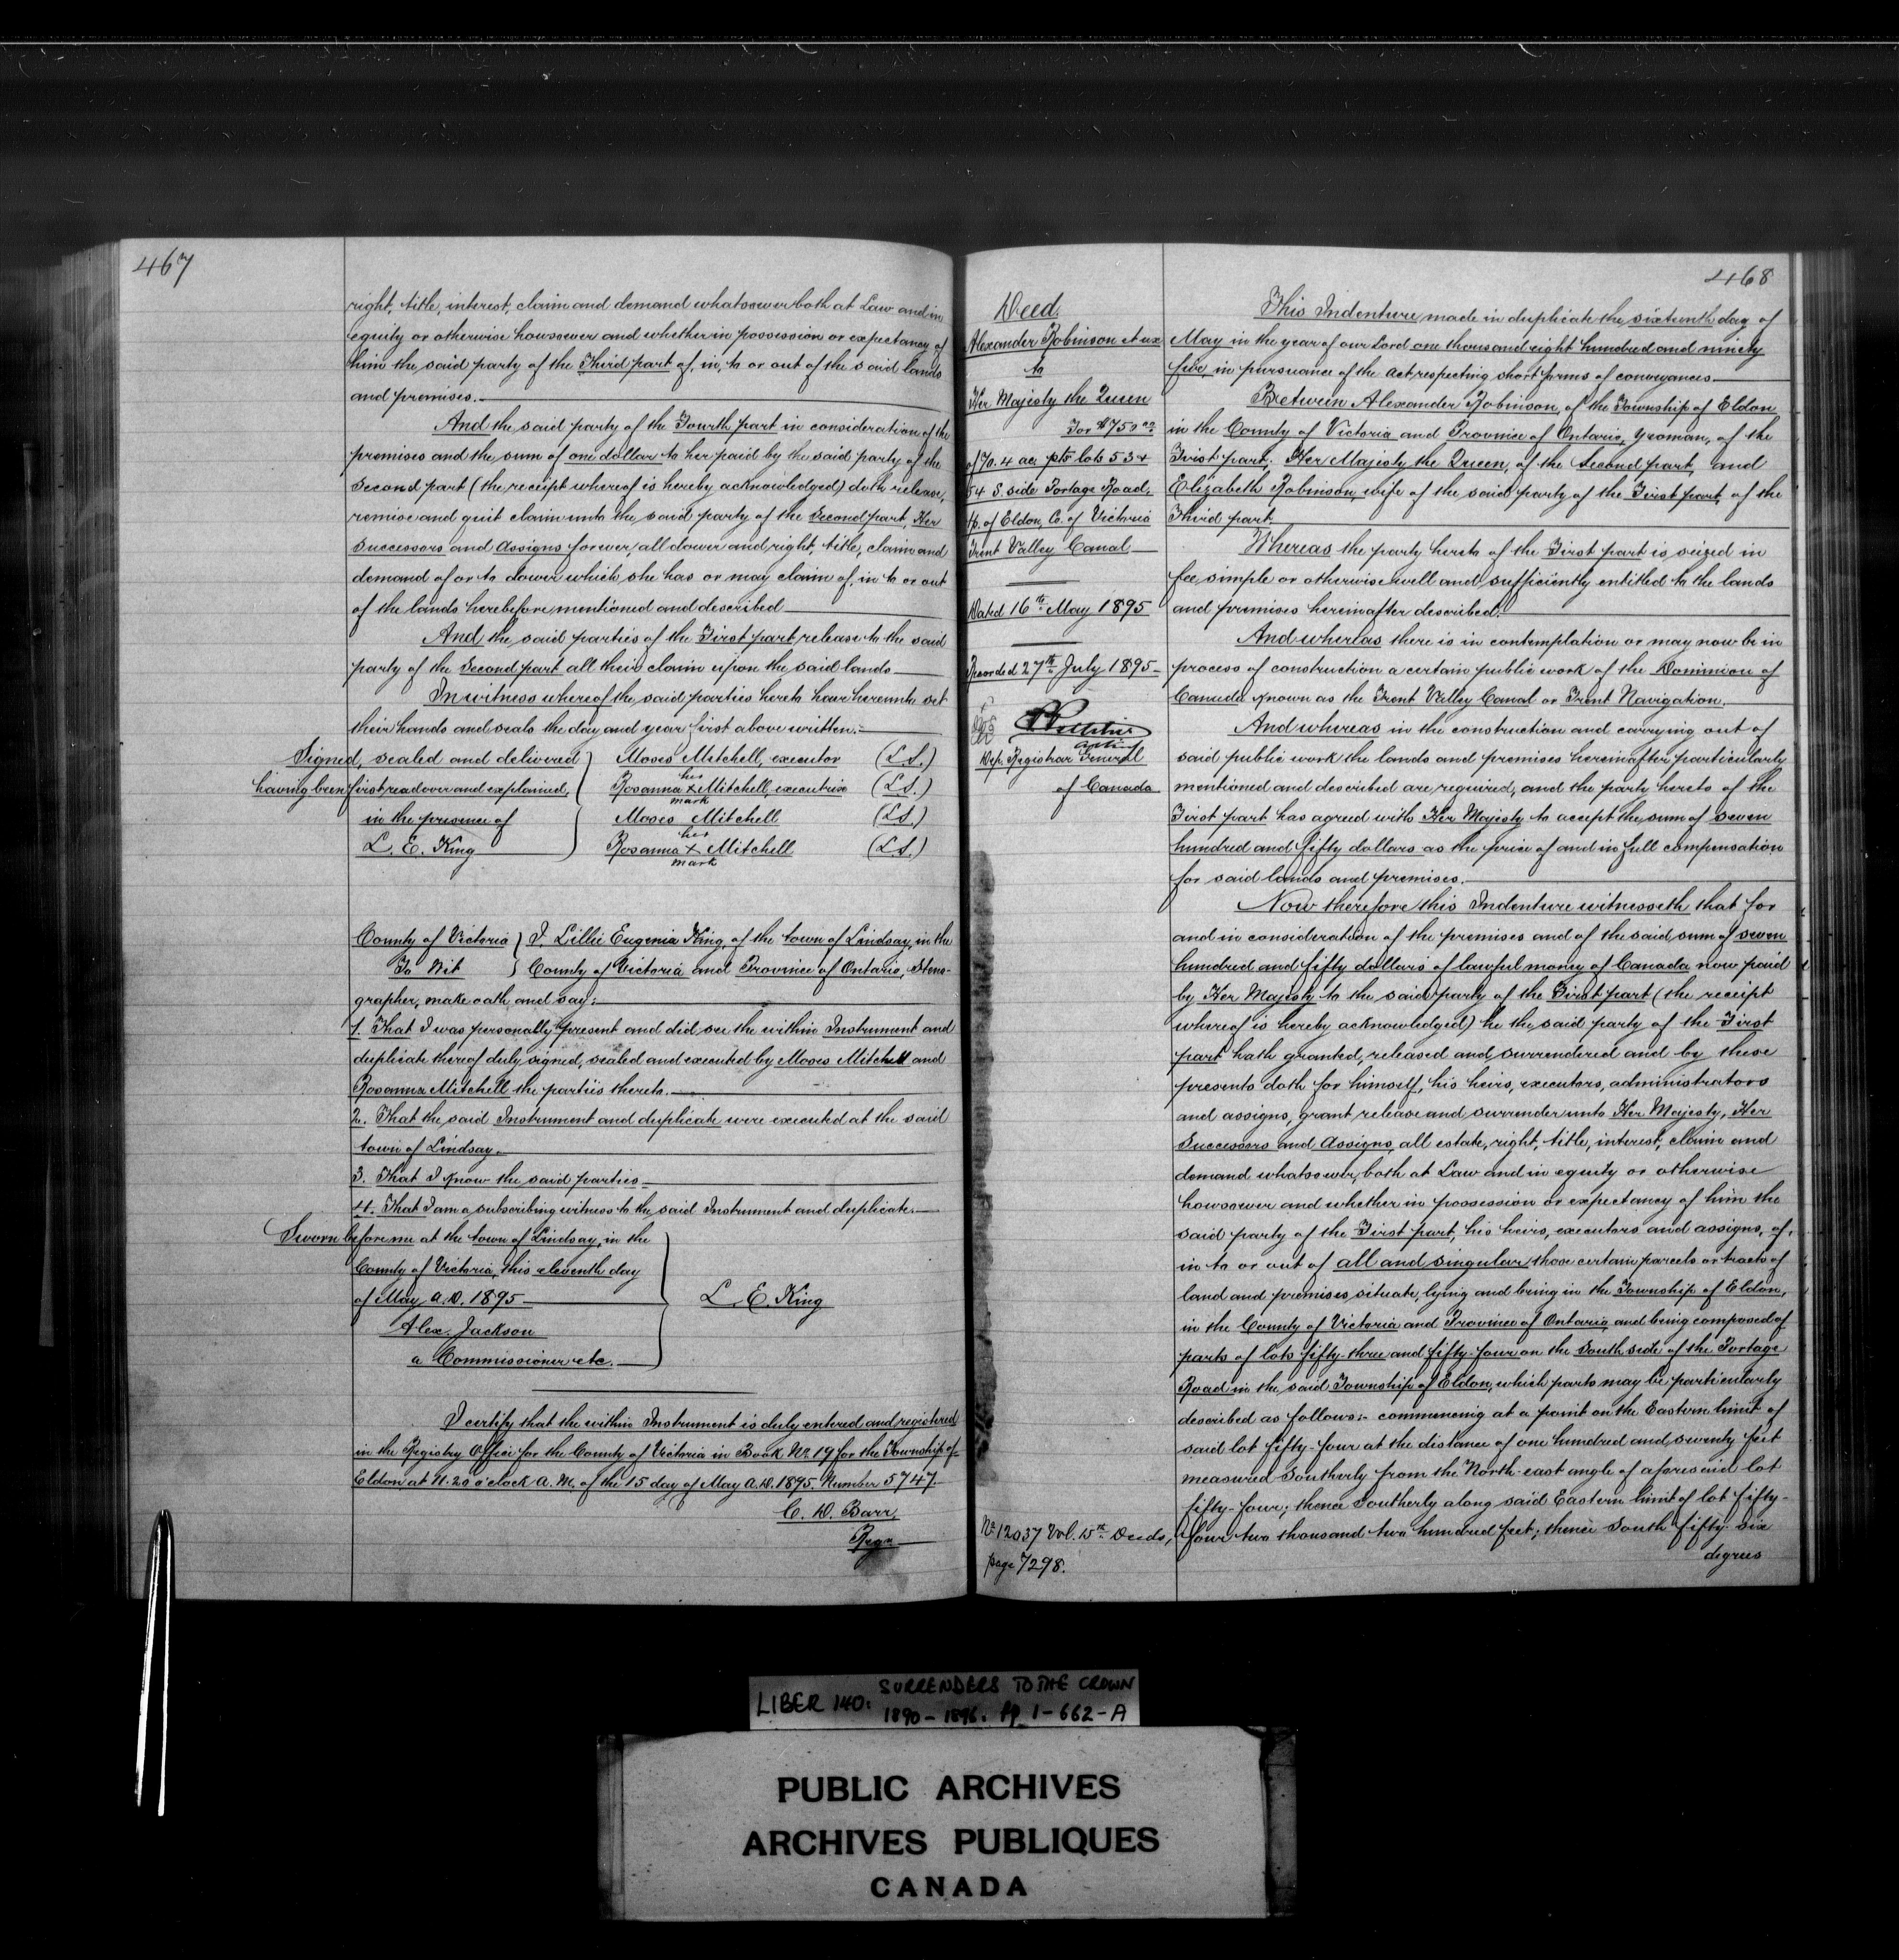 467
right, title, interest, claim and demand whatsoever both at Law and in
equity or otherwise howsoever and whether in possession or expectancy of
him the said party of the Third part of, in, to or out of the said lands
and premises.
And the said party of the Fourth part in consideration of the
premises and the sum of one dollar to her paid by the said party of the
Second part (the receipt whereof is hereby acknowledged) doth release,
remise and quit claim unto the said party of the Second part, Her
Successors and Assigns forever, all dower and right, title, claim and
demand of or to dower which she has or may claim of, in to or out
of the lands herebefore mentioned and described
And the said parties of the First part release to the said
party of the Second part all their claim upon the said lands
In witness whereof the said parties hereto have hereunto set
their hands and seals the day and year first above written:
Signed, sealed and delivered Moses Mitchell, executor (L.S.)
having been first read over and explained, Rosanna her x mark Mitchell, executrix (L.S.)
in the presence of Moses Mitchell (L.S.)
L. E. King Rosanna her x mark Mitchell (L.S.)
County of Victoria I, Lillie Eugenia King, of the town of Lindsay, in the
To Wit County of Victoria and Province of Ontario, Steno-
grapher, make oath and say:
1. That I was personally present and did see the within Instrument and
duplicate thereof duly signed, sealed and executed by Moses Mitchell and
Rosanna Mitchell the parties thereto.
2. That the said Instrument and duplicate were executed at the said
town of Lindsay.
3. That I know the said parties
4. That I am a subscribing witness to the said Instrument and duplicate.
Sworn before me at the town of Lindsay, in the
County of Victoria, this eleventh day
of May A.D. 1895
L. E. King
Alex. Jackson
a Commissioner etc.
I certify that the within Instrument is duly entered and registered
in the Registry Office for the County of Victoria in Book No. 19 for the Township of
Eldon at 11.20 o'clock A.M. of the 15 day of May A.D. 1895. Number 5747.
C. D. Barr
Regr
468
Deed.
Alexander Robinson et ux
to
Her Majesty the Queen
For $750.00
of 70.4 ac. pts lots 53 +
54 S. side Portage Road,
Tp. of Eldon, Co. of Victoria
Trent Valley Canal
Dated 16th May 1895
Recorded 27th July 1895
acting
Dep. Registrar General
of Canada
No 12037 Vol. 15th Deeds,
page 7298.
This Indenture made in duplicate the sixteenth day of
May in the year of our Lord one thousand eight hundred and ninety
five, in pursuance of the Act respecting short forms of conveyances
Between Alexander Robinson, of the Township of Eldon
in the County of Victoria and Province of Ontario, Yeoman, of the
First part; Her Majesty the Queen, of the Second part, and
Elizabeth Robinson, wife of the said party of the First part, of the
Third part.
Whereas the party hereto of the First part is seized in
fee simple or otherwise well and sufficiently entitled to the lands
and premises hereinafter described.
And whereas there is in contemplation or may now be in
process of construction a certain public work of the Dominion of
Canada known as the Trent Valley Canal or Trent Navigation.
And whereas in the construction and carrying out of
said public work the lands and premises hereinafter particularly
mentioned and described are required, and the party hereto of the
First part has agreed with Her Majesty to accept the sum of seven
hundred and fifty dollars as the price of and in full compensation
for said lands and premises.
Now therefore this Indenture witnesseth that for
and in consideration of the premises and of the said sum of seven
hundred and fifty dollars of lawful money of Canada now paid
by Her Majesty to the said party of the First part (the receipt
whereof is hereby acknowledged) he the said party of the First
part hath granted, released and surrendered and by these
presents doth for himself, his heirs, executors, administrators
and assigns, grant release and surrender unto Her Majesty, Her
Successors and Assigns, all estate, right, title, interest, claim and
demand whatsoever, both at Law and in equity or otherwise
howsoever and whether in possession or expectancy of him the
said party of the First part, his heirs, executors and assigns, of,
in to or out of all and singular those certain parcels or tracts of
land and premises, situate, lying and being in the Township of Eldon,
in the County of Victoria and Province of Ontario, and being composed of
parts of lots fifty-three and fifty-four on the South side of the Portage
Road in the said Township of Eldon, which parts may be particularly
described as follows:- commencing at a point on the Eastern limit of
said lot fifty-four at the distance of one hundred and seventy feet
measured Southerly from the North-east angle of aforesaid lot
fifty-four; thence Southerly along said Eastern limit of lot fifty-
four two thousand two hundred feet; thence South fifty-six
degrees
LIBER 140: SURRENDERS TO THE CROWN
1890-1896. Pp 1-662-A
PUBLIC ARCHIVES
ARCHIVES PUBLIQUES
CANADA